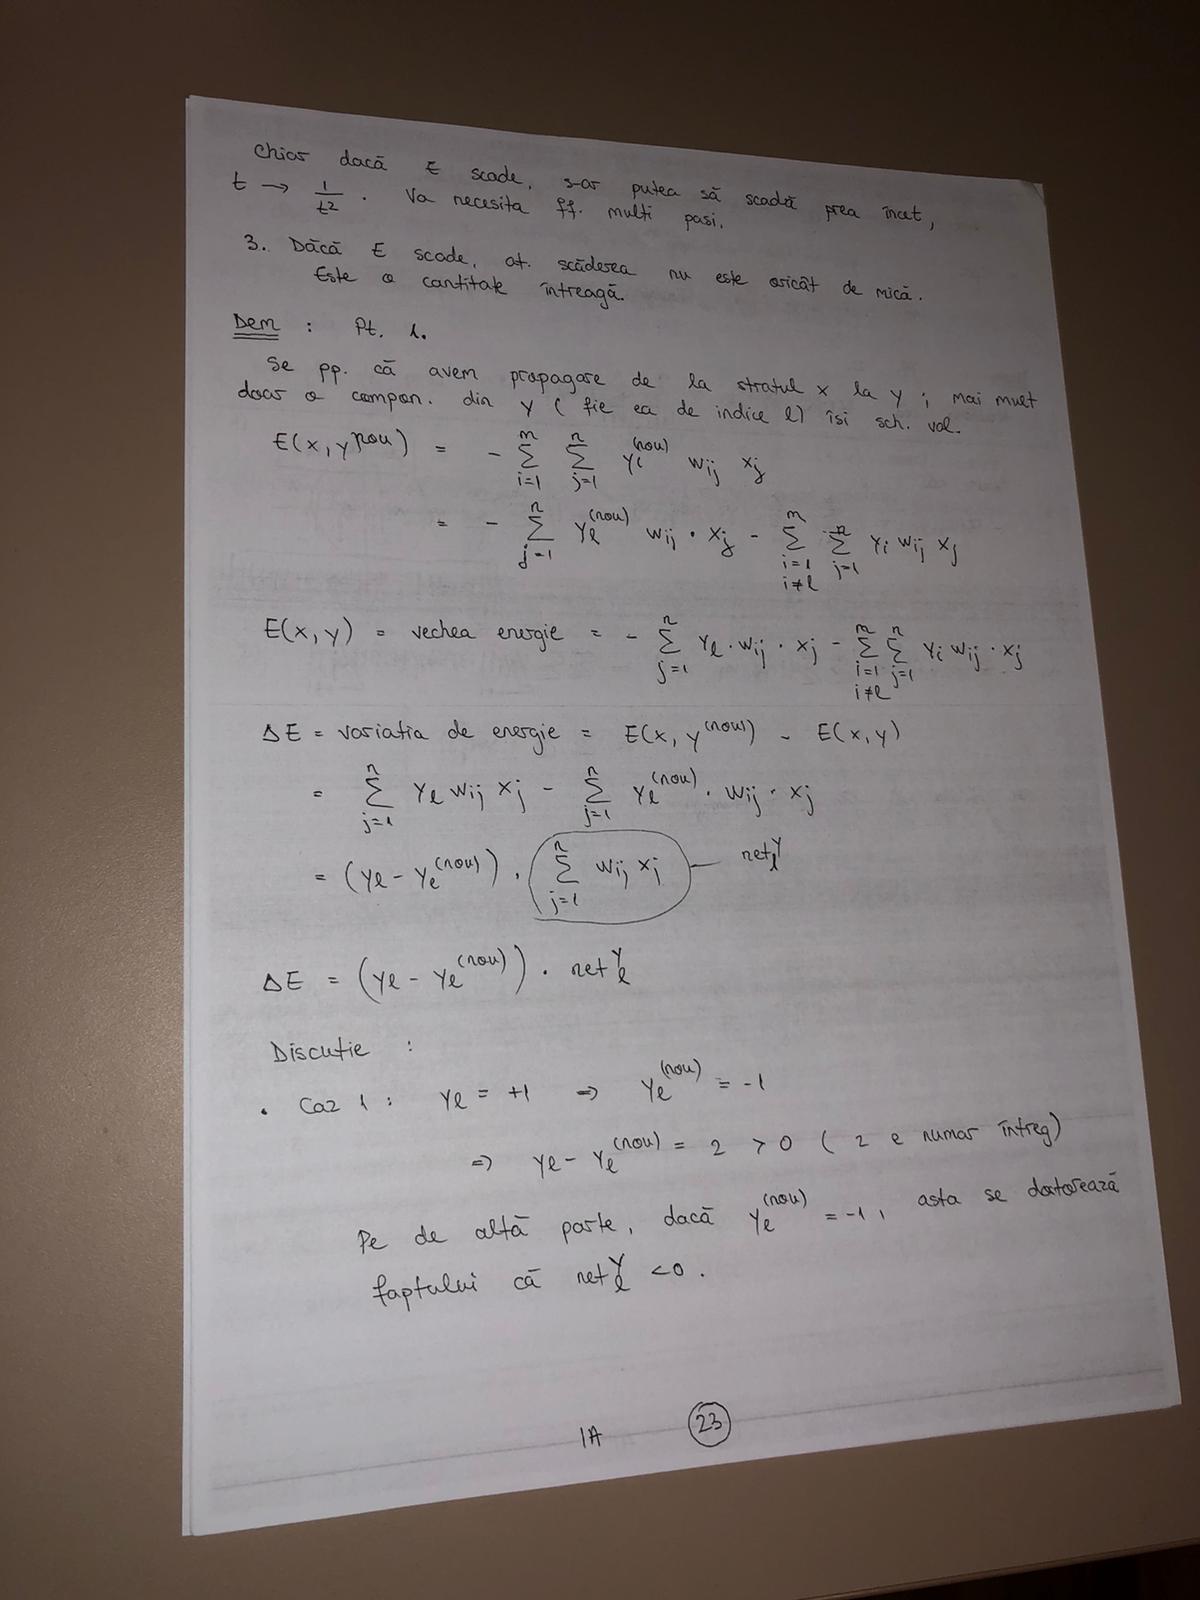 Chiar dacă E scade, s-ar putea să scadă prea încet,
t → 1/t². Va necesita ff. multi pasi.
3. Dăcă E scade, at. scăderea nu este oricât de mică.
Este o cantitate întreagă.
Dem : Pt. 1.
Se pp. că avem propagare de la stratul x la y ; mai mult
doar o compon. din y ( fie ea de indice l) își sch. val.
E(x, y^nou) = - Σ_{i=1}^{m} Σ_{j=1}^{n} y_i^(nou) w_ij x_j
= - Σ_{j=1}^{n} y_l^(nou) w_ij · x_j - Σ_{i=1, i≠l}^{m} Σ_{j=1}^{n} y_i w_ij x_j
E(x, y) = vechea energie = - Σ_{j=1}^{n} y_l · w_ij · x_j - Σ_{i=1, i≠l}^{m} Σ_{j=1}^{n} y_i w_ij · x_j
ΔE = variatia de energie = E(x, y^(nou)) - E(x, y)
= Σ_{j=1}^{n} y_l w_ij x_j - Σ_{j=1}^{n} y_l^(nou) · w_ij · x_j
= (y_l - y_l^(nou)) · Σ_{j=1}^{n} w_ij x_j — net_l^y
ΔE = (y_l - y_l^(nou)) · net_l^y
Discuție :
• Caz 1 : y_l = +1 ⇒ y_l^(nou) = -1
⇒ y_l - y_l^(nou) = 2 > 0 ( 2 e numar întreg)
Pe de altă parte, dacă y_l^(nou) = -1, asta se datorează
faptului că net_l^y < 0.
IA 23